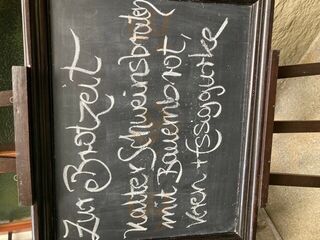 Zur Brotzeit
kalter Schweinsbraten
mit Bauernbrot,
Kren + Essiggurke